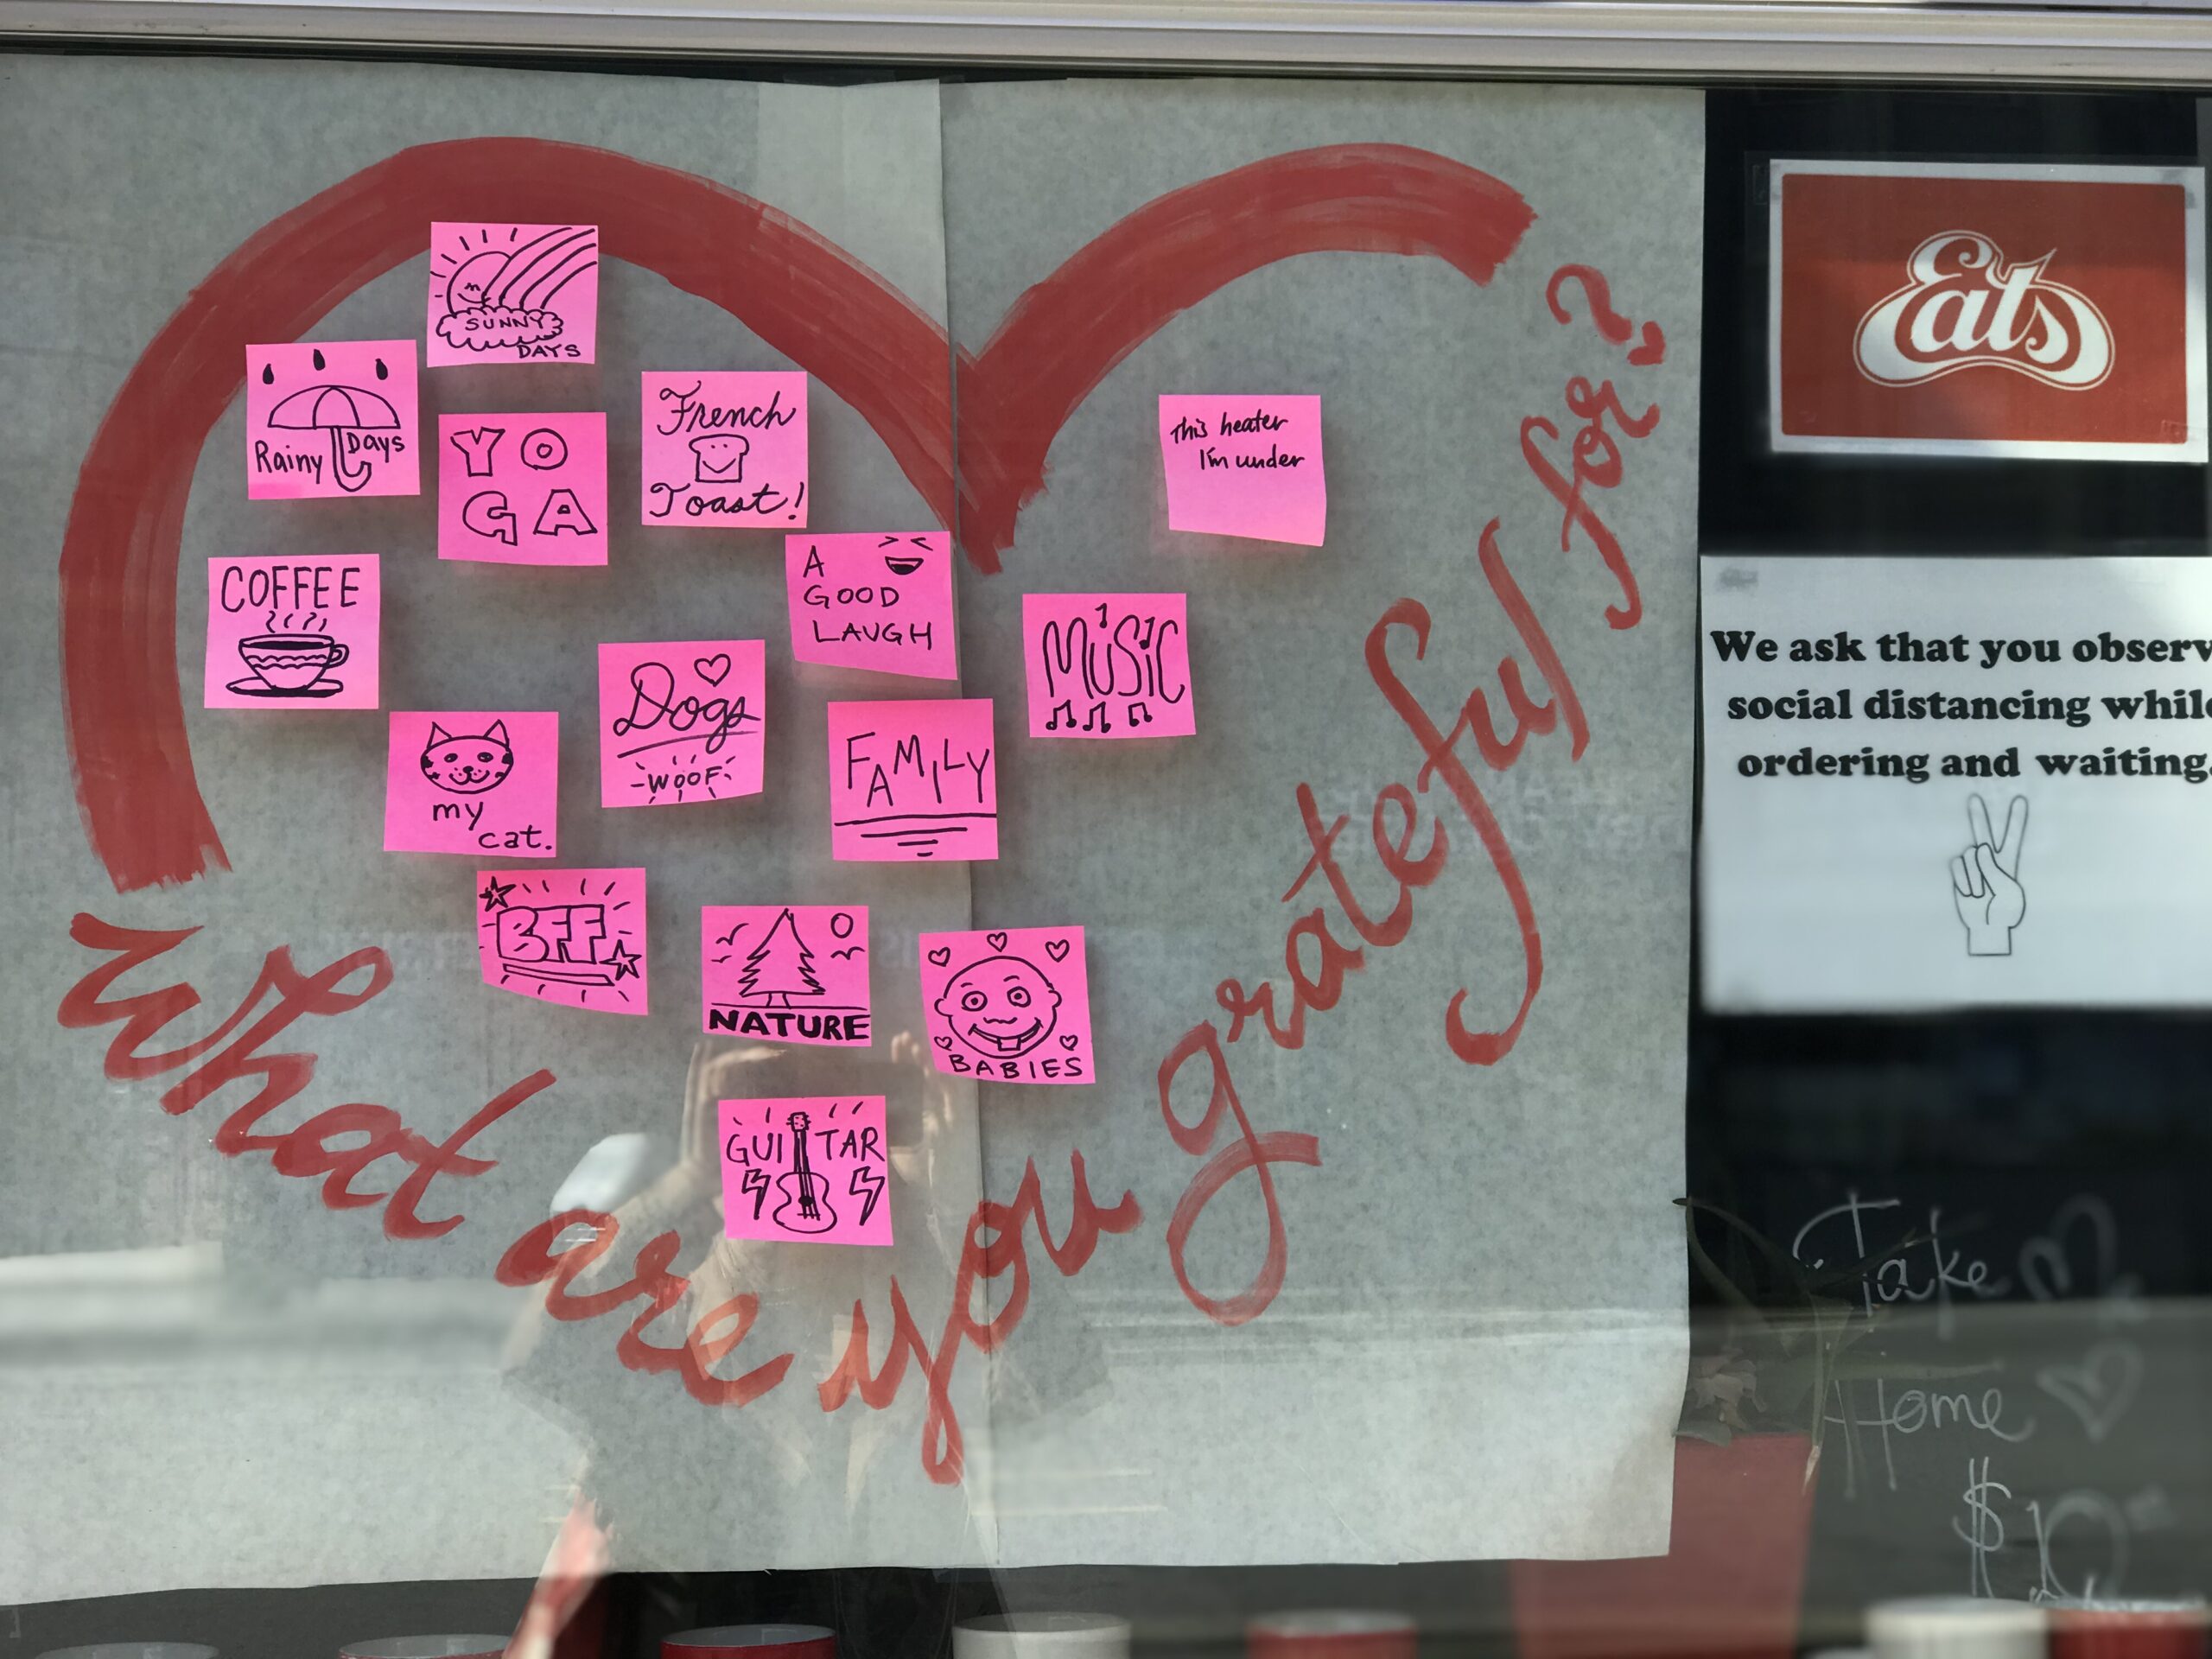 SUNNY
DAYS
Rainy Days
YO
GA
French
Toast!
This heater
I'm under
COFFEE
A
GOOD
LAUGH
MUSIC
Dogs
WOOF
FAMILY
my
cat.
BFF
NATURE
BABIES
GUITAR
What are you grateful for?
Eats
We ask that you observ
social distancing while
ordering and waiting.
Take
Home
$10